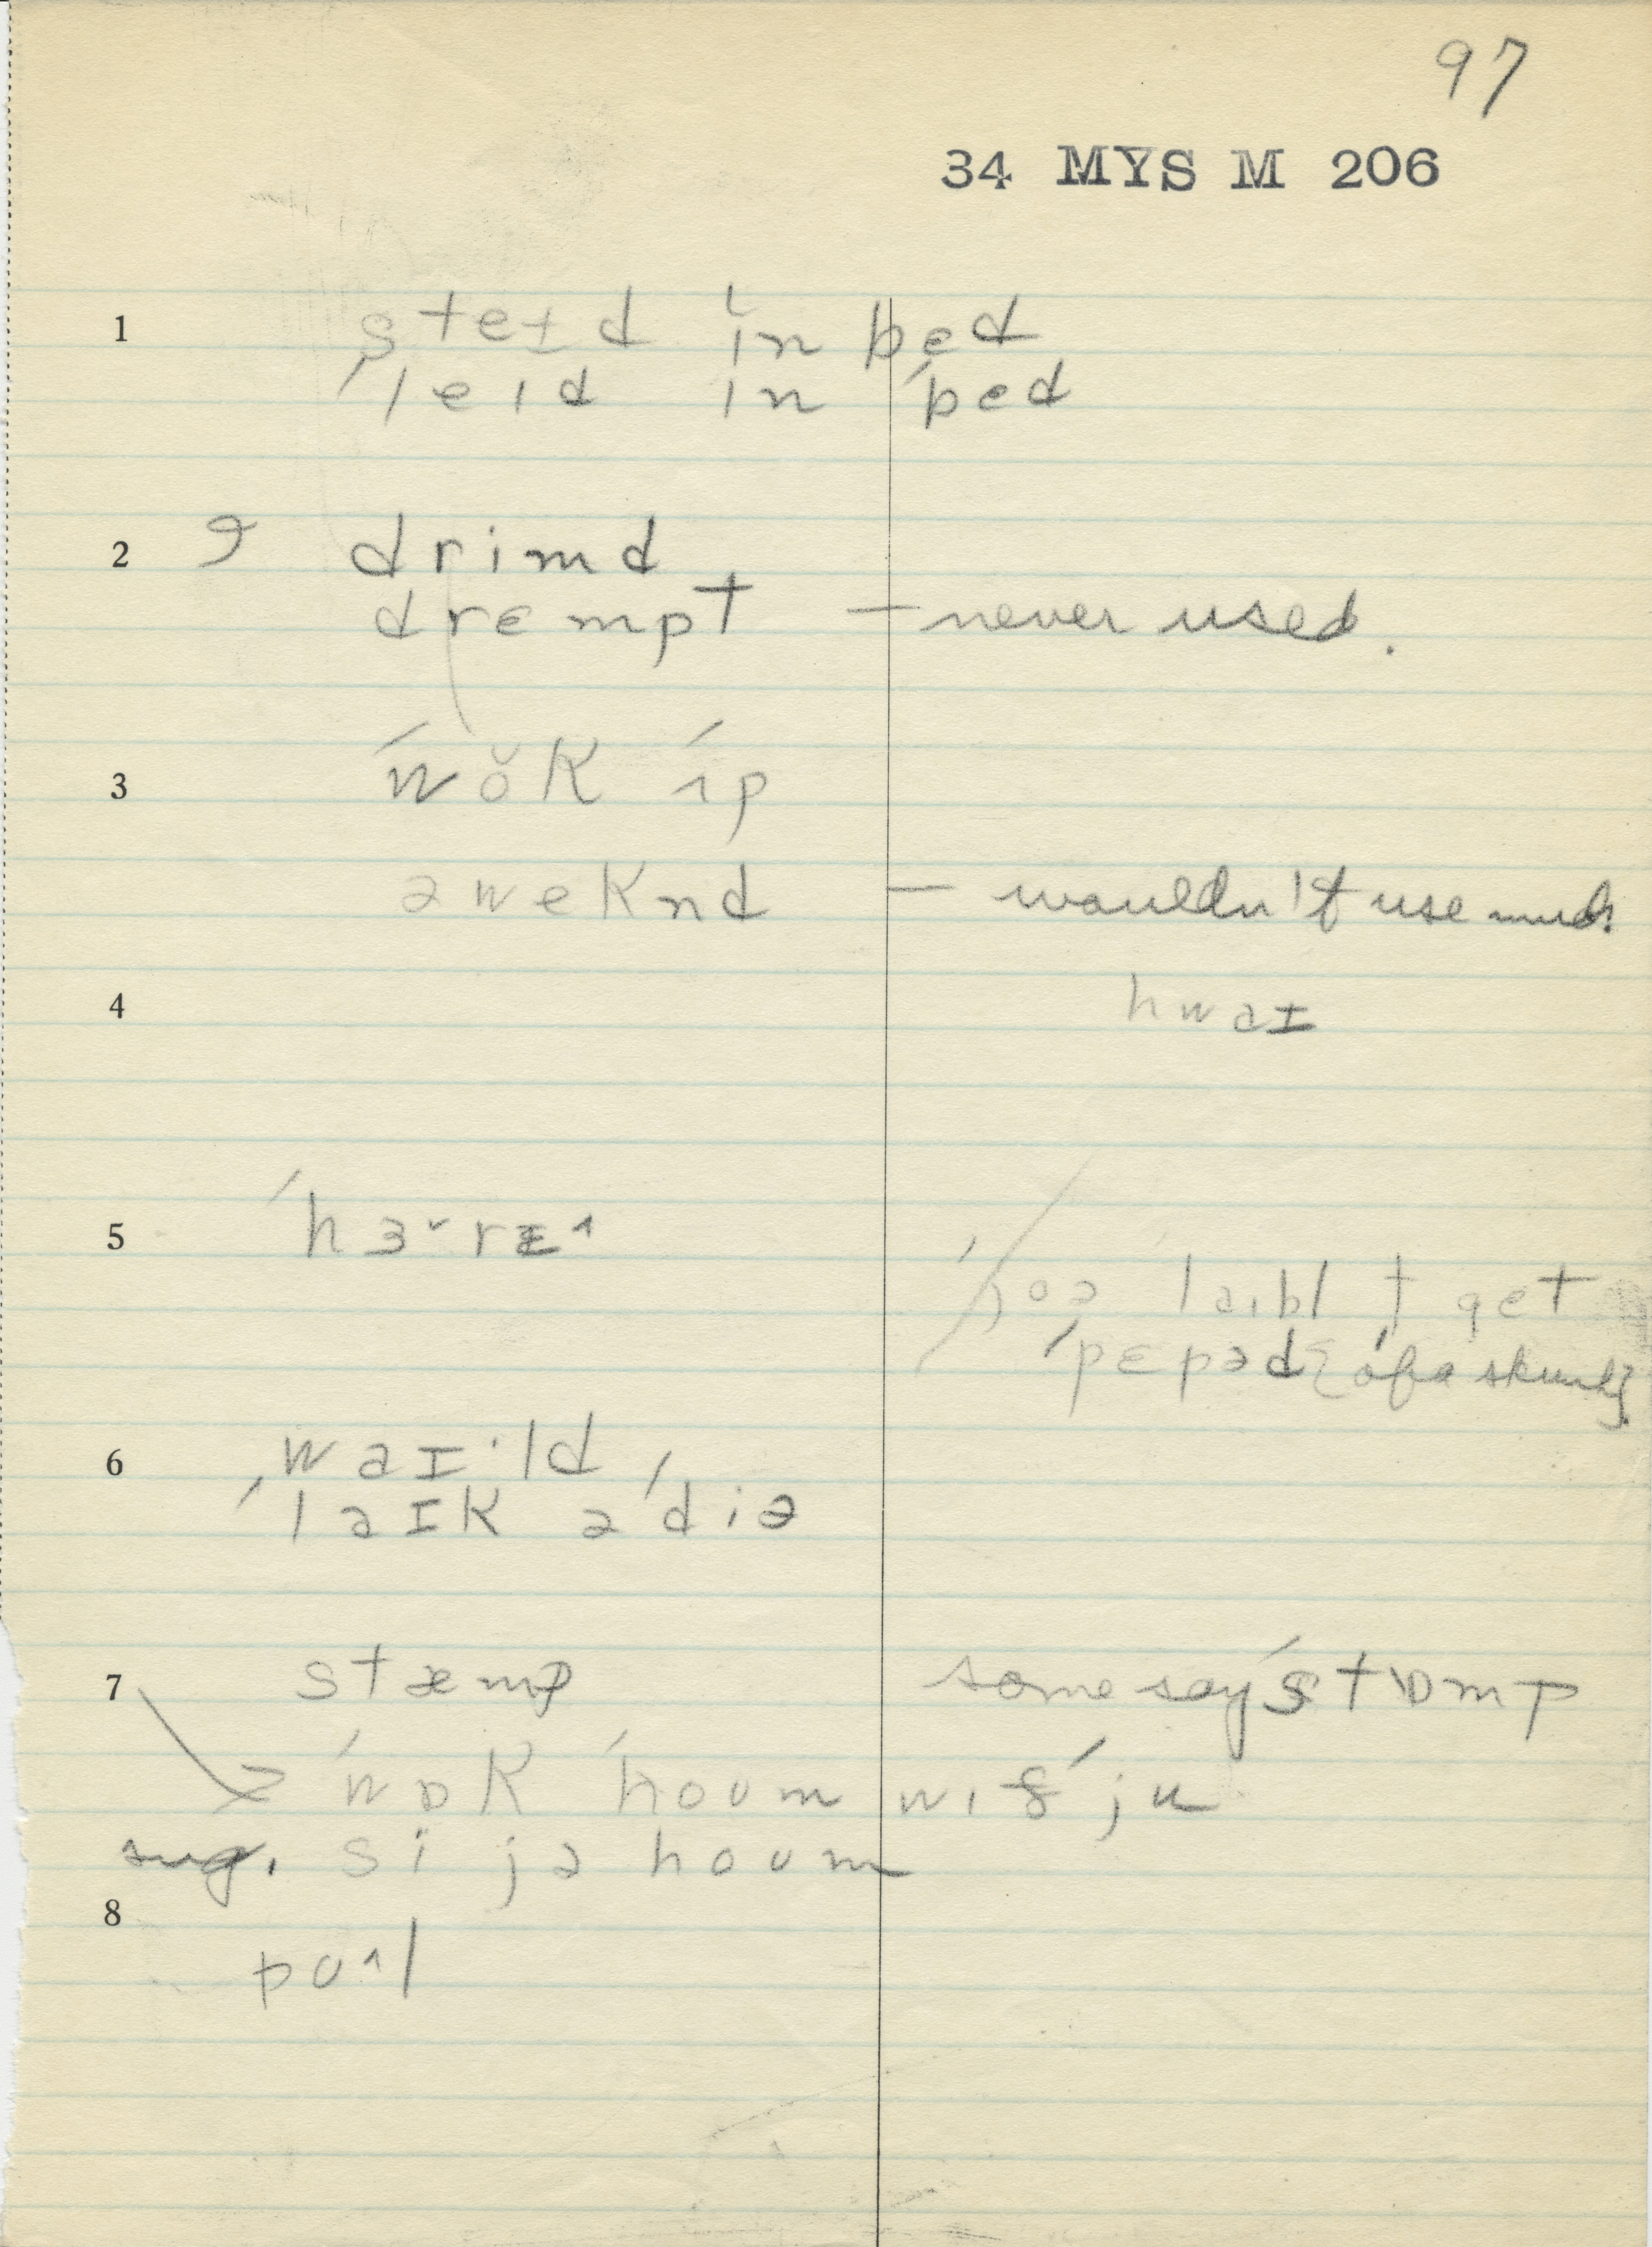 97
34 MYS M 206
1 steɪd ɪn bed
ˈleɪd ɪn ˈbed
2 drimd
drɛmpt — never used.
3 ˈwǒk ˈɪp
əweknd — wouldn't use much
4 hwaɪ
5 ˈhɜ˅rɪ˄
laɪbl t get
ˈpɛpəd {of a skunk}
6 waɪ·ld
ˈlaɪk ə ˈdiə
7 stæmp some say ˈstɒmp
ˈwɒk ˈhoʊm wɪð ˈju
sug. si jə hoʊm
8
pʊ˄l